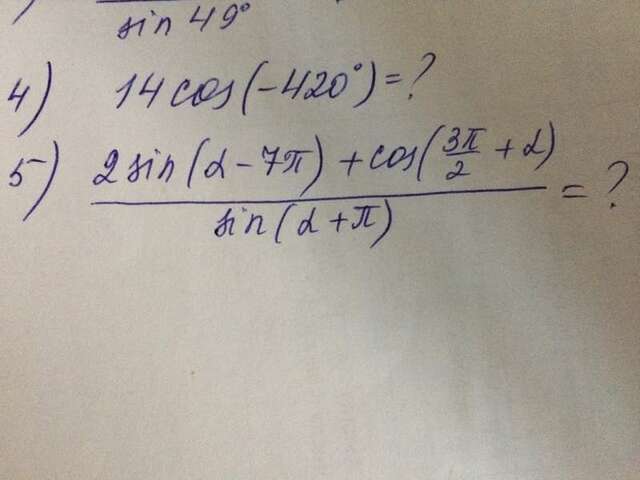 sin 49°
4) 14 cos(-420°) = ?
5) 2 sin(α - 7π) + cos(3π/2 + α)
sin(α + π) = ?